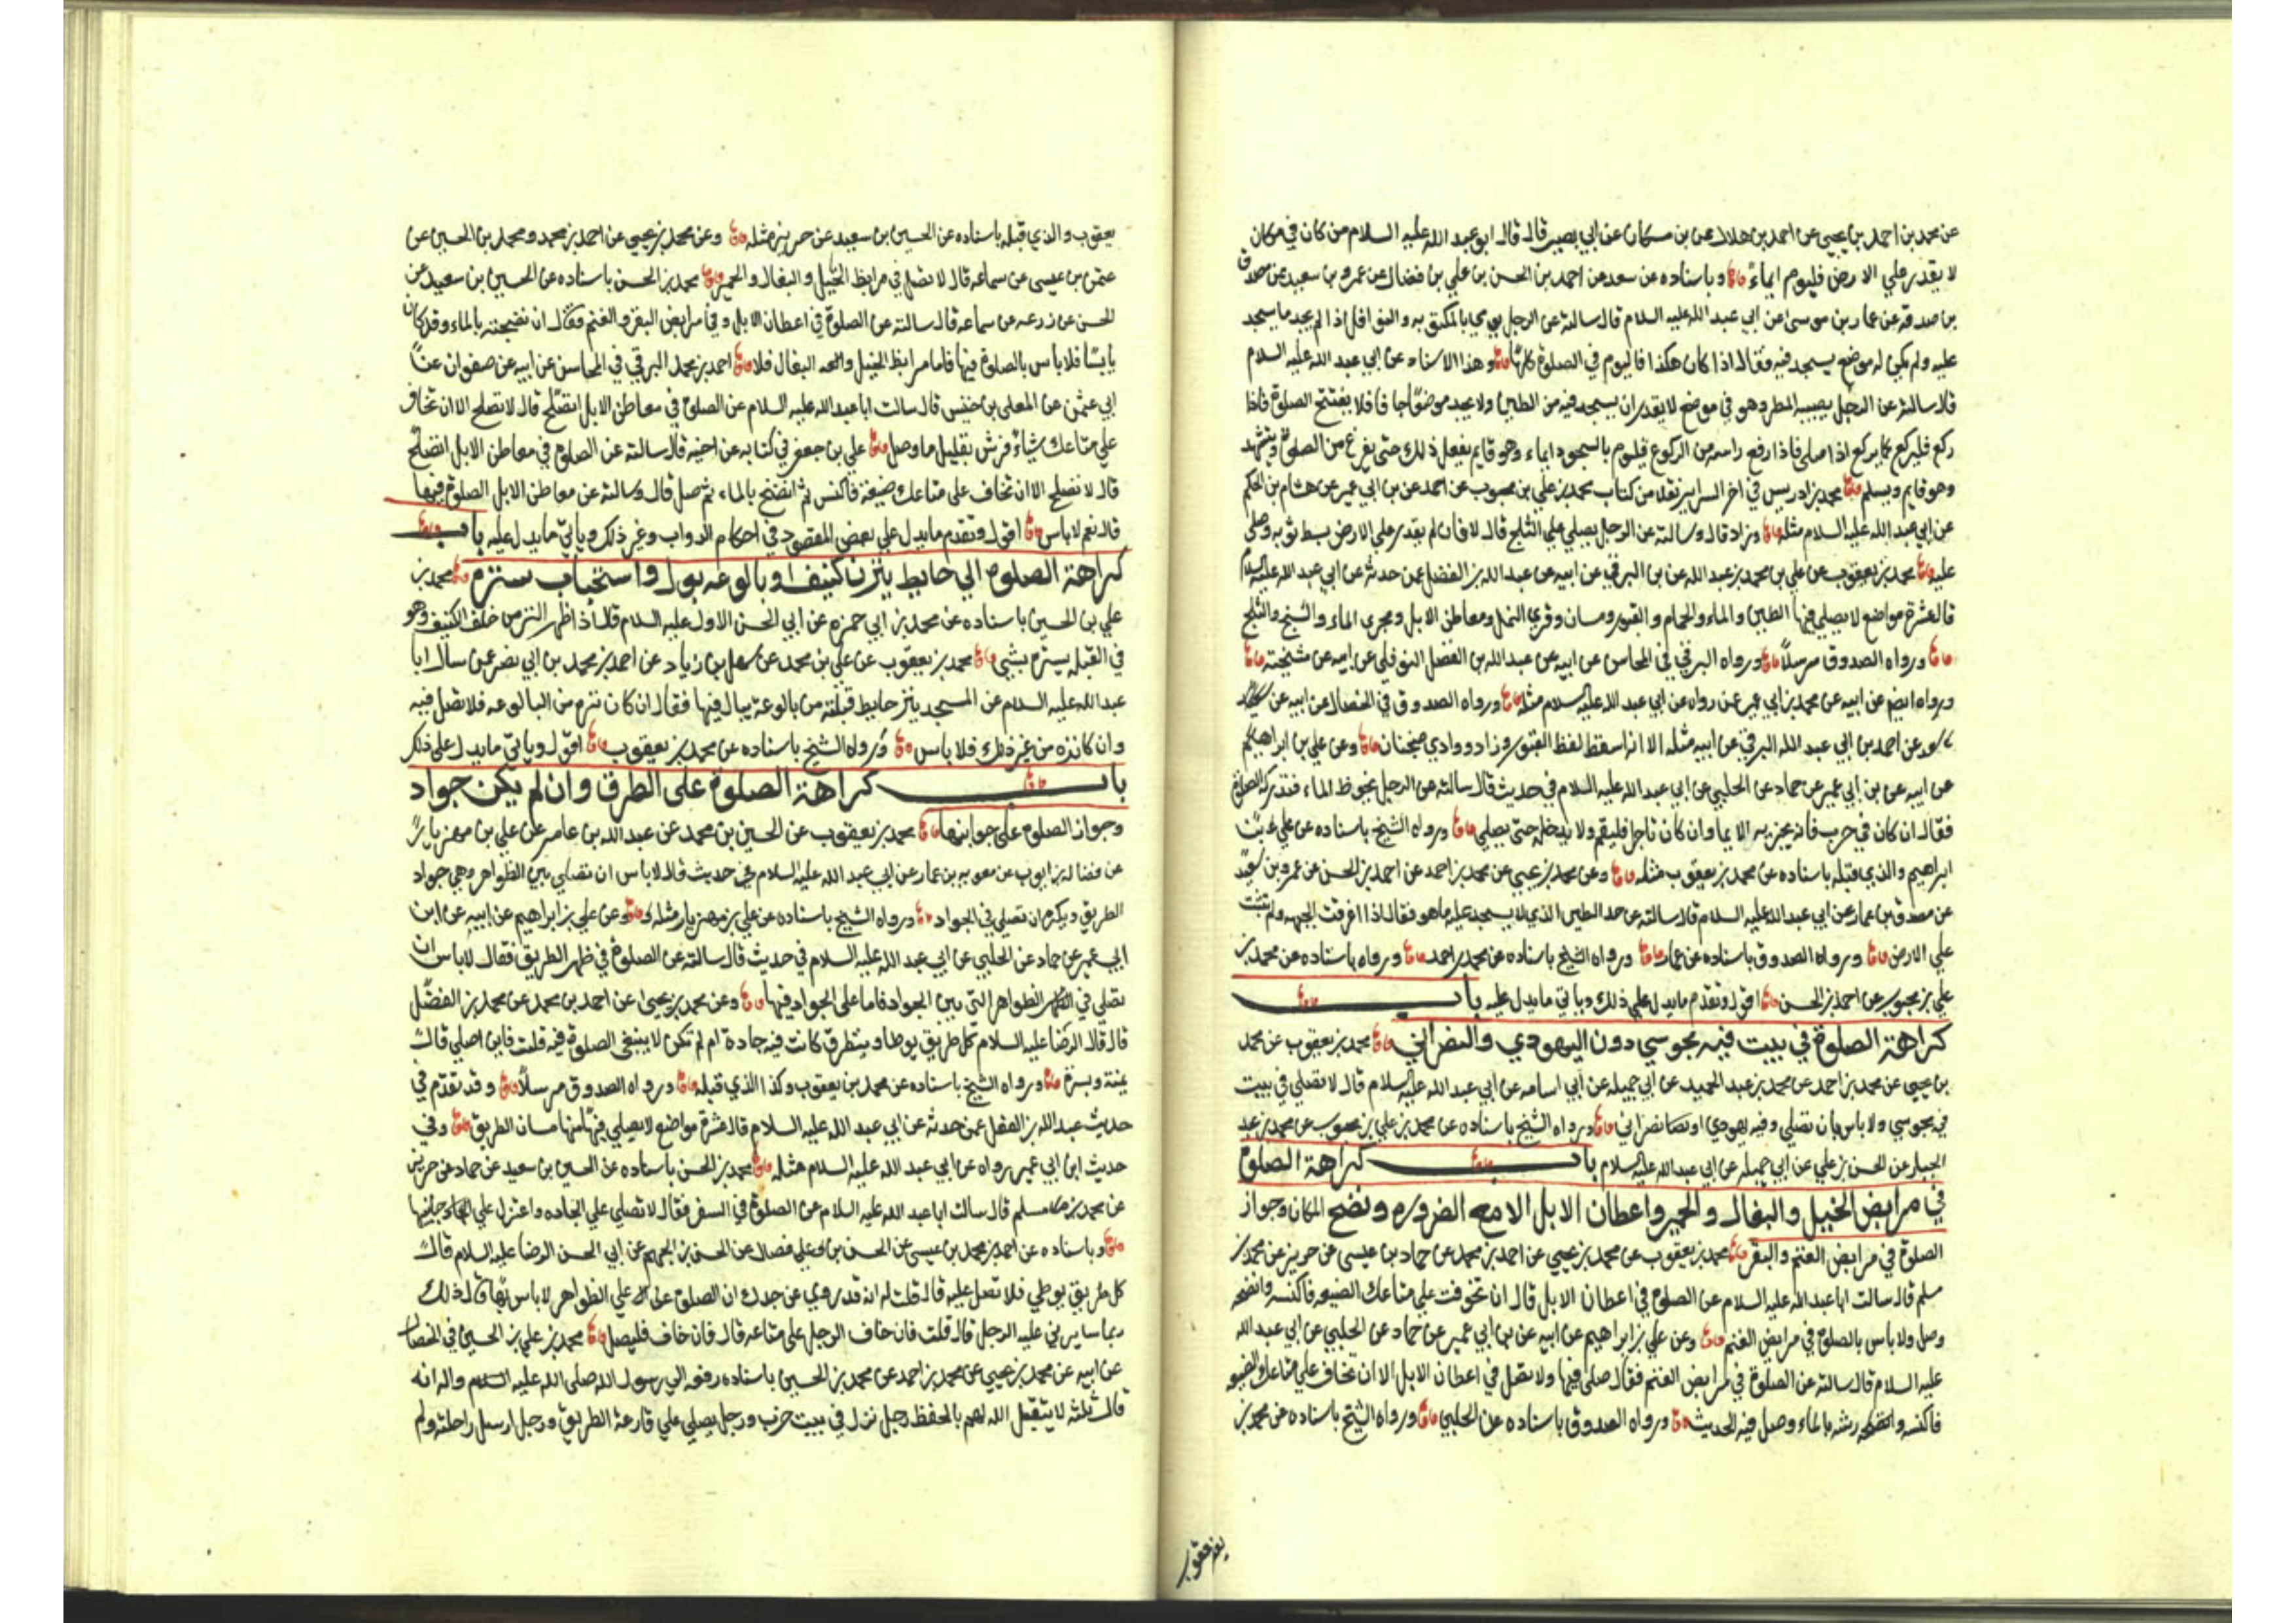 عن محمد بن احمد بن يحيي عن احمد بن هلال عن بن مسكان عن ابي بصير قال قال ابو عبد الله عليه السلام من كان في مكان
لا يقدر علي الارض فليوم ايماءً وباسناده عن سعد عن احمد بن الحسن بن علي بن فضال عن عمرو بن سعيد عن مصدق
بن صدقة عن عمار بن موسي عن ابي عبد الله عليه السلام قال سالته عن الرجل يومي بالمكتوبة والنوافل اذا لم يجد ما يسجد
عليه ولم يكن له موضع يسجد فيه فقال اذا كان هكذا فاليوم في الصلوة كلها وهذا الاسناد عن ابي عبد الله عليه السلام
قال سالته عن الرجل يصيبه المطر وهو في موضع لا يقدر ان يسجد فيه من الطين ولا يجد موضعا جافا قال يفتتح الصلوة فاذا
ركع فليركع كما يركع اذا صلي فاذا رفع راسه من الركوع فليوم بالسجود ايماء وهو قايم يفعل ذلك حتي يفرغ من الصلوة ويتشهد
وهو قايم ويسلم محمد بن ادريس في اخر السراير نقلا من كتاب محمد بن علي بن محبوب عن احمد عن بن ابي عمير عن هشام بن الحكم
عن ابي عبد الله عليه السلام مثله وزاد قال وسالته عن الرجل يصلي علي الثلج قال لا فان لم يقدر علي الارض بسط ثوبه وصلي
عليه محمد بن يعقوب عن علي بن محمد بن عبد الله عن بن البرقي عن ابيه عن عبد الله بن الفضل عمن حدثه عن ابي عبد الله عليه السلام
قال عشرة مواضع لا يصلي فيها الطين والماء والحمام والقبور ومسان وقري النمل ومعاطن الابل ومجري الماء والسبخ والثلج
ورواه الصدوق مرسلاً ورواه البرقي في المحاسن عن ابيه عن عبد الله بن الفضل النوفلي عن ابيه عن مشيخته
ورواه ايضم عن ابيه عن محمد بن ابي عمير عن رواه عن ابي عبد الله عليه السلام مثله ورواه الصدوق في الخصال عن ابيه عن
عن احمد بن ابي عبد الله البرقي عن ابيه مثله الا انه اسقط لفظ القبور وزاد ووادي ضجنان وعن علي بن ابراهيم
عن ابيه عن بن ابي عمير عن حماد عن الحلبي عن ابي عبد الله عليه السلام في حديث قال سالته عن الرجل يخوض الماء فتدركه الصلوة
فقال ان كان في حرب فانه يجزيه الايما وان كان تاجرا فليقم ولا يدخله حتي يصلي ورواه الشيخ باسناده عن علي بن
ابراهيم والذي قبله باسناده عن محمد بن يعقوب مثله وعن محمد بن يحيي عن محمد بن احمد عن احمد بن الحسن عن عمرو بن سعيد
عن مصدق بن عمار عن ابي عبد الله عليه السلام قال سالته عن حد الطين الذي لا يسجد عليه ما هو فقال اذا اغرقت الجبهه ولم تثبت
علي الارض ورواه الصدوق باسناده عن عمار ورواه الشيخ باسناده عن محمد بن احمد ورواه باسناده عن محمد بن
علي بن محبوب عن احمد بن الحسن اقول وتقدم ما يدل علي ذلك وياتي ما يدل عليه باب
كراهة الصلوة في بيت فيه مجوسي دون اليهودي والنصراني محمد بن يعقوب عن محمد
بن يحيي عن محمد بن احمد عن محمد بن عبد الحميد عن ابي جميله عن ابي اسامه عن ابي عبد الله عليه السلام قال لا تصلي في بيت
فيه مجوسي ولا باس بان تصلي وفيه يهودي او نصراني ورواه الشيخ باسناده عن محمد بن علي بن محبوب عن محمد بن عبد
الجبار عن الحسن بن علي عن ابي جميله عن ابي عبد الله عليه السلام باب كراهة الصلوة
في مرابض الخيل والبغال والحمير واعطان الابل الا مع الضرورة ونضح المكان وجواز
الصلوة في مرابض الغنم والبقر محمد بن يعقوب عن محمد بن يحيي عن احمد بن محمد عن حماد بن عيسي عن حريز عن محمد بن
مسلم قال سالت ابا عبد الله عليه السلام عن الصلوة في اعطان الابل قال ان تخوفت علي متاعك الضيعه فاكنسه وانضحه
وصل ولا باس بالصلوة في مرابض الغنم وعن علي بن ابراهيم عن ابيه عن بن ابي عمير عن حماد عن الحلبي عن ابي عبد الله
عليه السلام قال سالته عن الصلوة في مرابض الغنم فقال صلي فيها ولا تصل في اعطان الابل الا ان تخاف علي متاعك الضيعه
فاكنسه وانضحه رشه بالماء وصل فيه الحديث ورواه الصدوق باسناده عن الحلبي ورواه الشيخ باسناده عن محمد بن
يعقوب
يعقوب والذي قبله باسناده عن الحسين بن سعيد عن حريز مثله وعن محمد بن يحيي عن احمد بن محمد ومحمد بن الحسين عن
عثمن بن عيسي عن سماعه قال لا تصل في مرابط الخيل والبغال والحمير محمد بن الحسن باسناده عن الحسين بن سعيد عن
الحسن عن زرعه عن سماعه قال سالته عن الصلوة في اعطان الابل وفي مرابض البقر والغنم فقال ان نضحته بالماء وقد كان
يابسًا فلا باس بالصلوة فيها فاما مرابط الخيل والبغال فلا احمد بن محمد البرقي في المحاسن عن ابيه عن صفوان عن
ابي عثمن عن المعلي بن خنيس قال سالت ابا عبد الله عليه السلام عن الصلوة في معاطن الابل اتصلح قال لا تصلح الا ان تخاف
علي متاعك شياءً فرش بقليل ماء وصل علي بن جعفر في كتابه عن اخيه قال سالته عن الصلوة في معاطن الابل اتصلح
قال لا تصلح الا ان تخاف علي متاعك ضيعة فاكنس ثم انضح بالماء ثم صل قال وسالته عن معاطن الابل الصلوة فيها
قال نعم لا باس اقول وتقدم ما يدل علي بعض المقصود في احكام الدواب وغير ذلك وياتي ما يدل عليه باب
كراهة الصلوة الي حايط ينز من كنيف او بالوعه بول واستحباب ستره محمد بن
علي بن الحسين باسناده عن محمد بن ابي حمزه عن ابي الحسن الاول عليه السلام قال اذا ظهر النز من خلف الكنيف وهو
في القبله يستره بشي محمد بن يعقوب عن علي بن محمد عن سهل بن زياد عن احمد بن محمد بن ابي نصر عمن سال ابا
عبد الله عليه السلام عن المسجد ينز حايط قبلته من بالوعة يبال فيها فقال ان كان نزه من البالوعه فلا تصل فيه
وان كان نزه من غير ذلك فلا باس ورواه الشيخ باسناده عن محمد بن يعقوب اقول وياتي ما يدل علي ذلك
باب كراهة الصلوة علي الطرق وان لم يكن جواد
وجواز الصلوة علي جوانبها محمد بن يعقوب عن الحسين بن محمد عن عبد الله بن عامر عن علي بن مهزيار
عن فضاله بن ايوب عن معويه بن عمار عن ابي عبد الله عليه السلام في حديث قال لا باس ان تصلي بين الظواهر وهي جواد
الطريق ويكره ان تصلي في الجواد ورواه الشيخ باسناده عن علي بن مهزيار مثله وعن علي بن ابراهيم عن ابيه عن ابن
ابي عمير عن حماد عن الحلبي عن ابي عبد الله عليه السلام في حديث قال سالته عن الصلوة في ظهر الطريق فقال لا باس ان
تصلي في الظواهر التي بين الجواد فاما علي الجواد فيها وعن محمد بن يحيي عن احمد بن محمد عن محمد بن الفضل
قال قال الرضا عليه السلام كل طريق يوطا ويتطرق كانت فيه جادة ام لم تكن لا ينبغي الصلوة فيه قلت فاين اصلي قال
يمنة ويسرة ورواه الشيخ باسناده عن محمد بن يعقوب وكذا الذي قبله ورواه الصدوق مرسلاً وقد تقدم في
حديث عبد الله بن الفضل عمن حدثه عن ابي عبد الله عليه السلام قال عشرة مواضع لا يصلي فيها منها مسان الطريق وفي
حديث ابن ابي عمير رواه عن ابي عبد الله عليه السلام مثله محمد بن الحسن باسناده عن الحسين بن سعيد عن حماد عن حريز
عن محمد بن مسلم قال سالت ابا عبد الله عليه السلام عن الصلوة في السفر فقال لا تصلي علي الجاده واعتزل علي جانبيها
وباسناده عن احمد بن محمد بن عيسي عن الحسن بن علي فضال عن الحسن بن الجهم عن ابي الحسن الرضا عليه السلام قال
كل طريق يوطي فلا تصل عليه قال قلت له انه قد روي عن جدك ان الصلوة علي الظواهر لا باس بها قال ذلك
ربما سايرني عليه الرجل قال قلت فان خاف الرجل علي متاعه قال فان خاف فليصل محمد بن علي بن الحسين في الخصال
عن ابيه عن محمد بن يحيي عن محمد بن احمد عن محمد بن الحسين باسناده رفعه الي رسول الله صلي الله عليه السلام واله انه
قال ثلثة لا يتقبل الله لهم بالحفظ رجل نزل في بيت خرب ورجل يصلي علي قارعة الطريق ورجل ارسل راحلته ولم